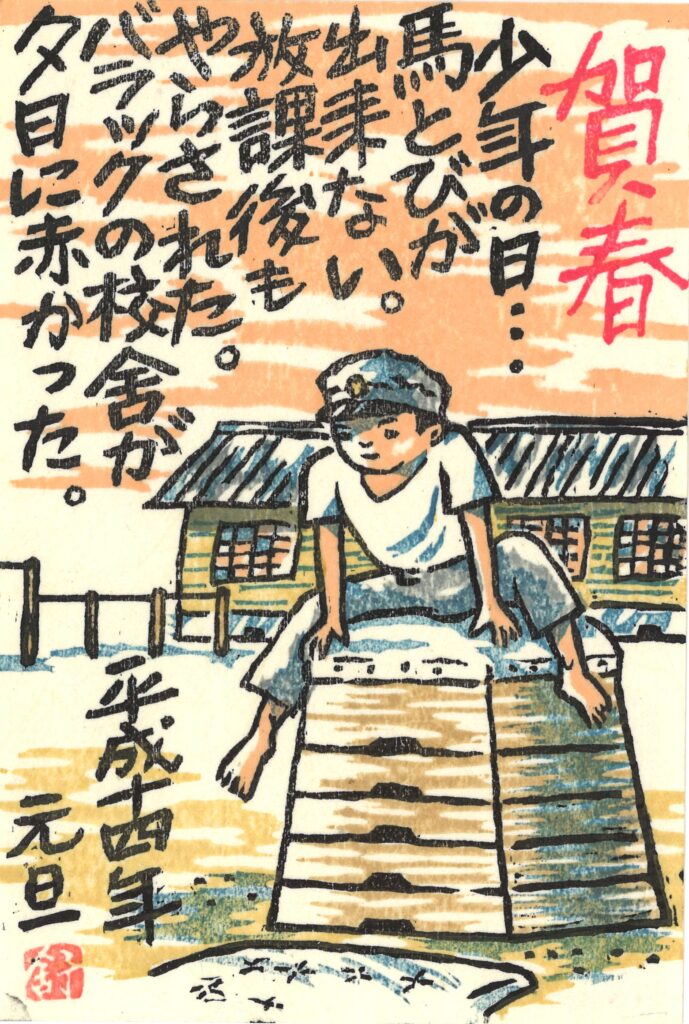 賀春
少年の日…
馬とびが
出来ない。
放課後も
やらされた。
バラックの校舎が
夕日に赤かった。
平成十四年
元旦